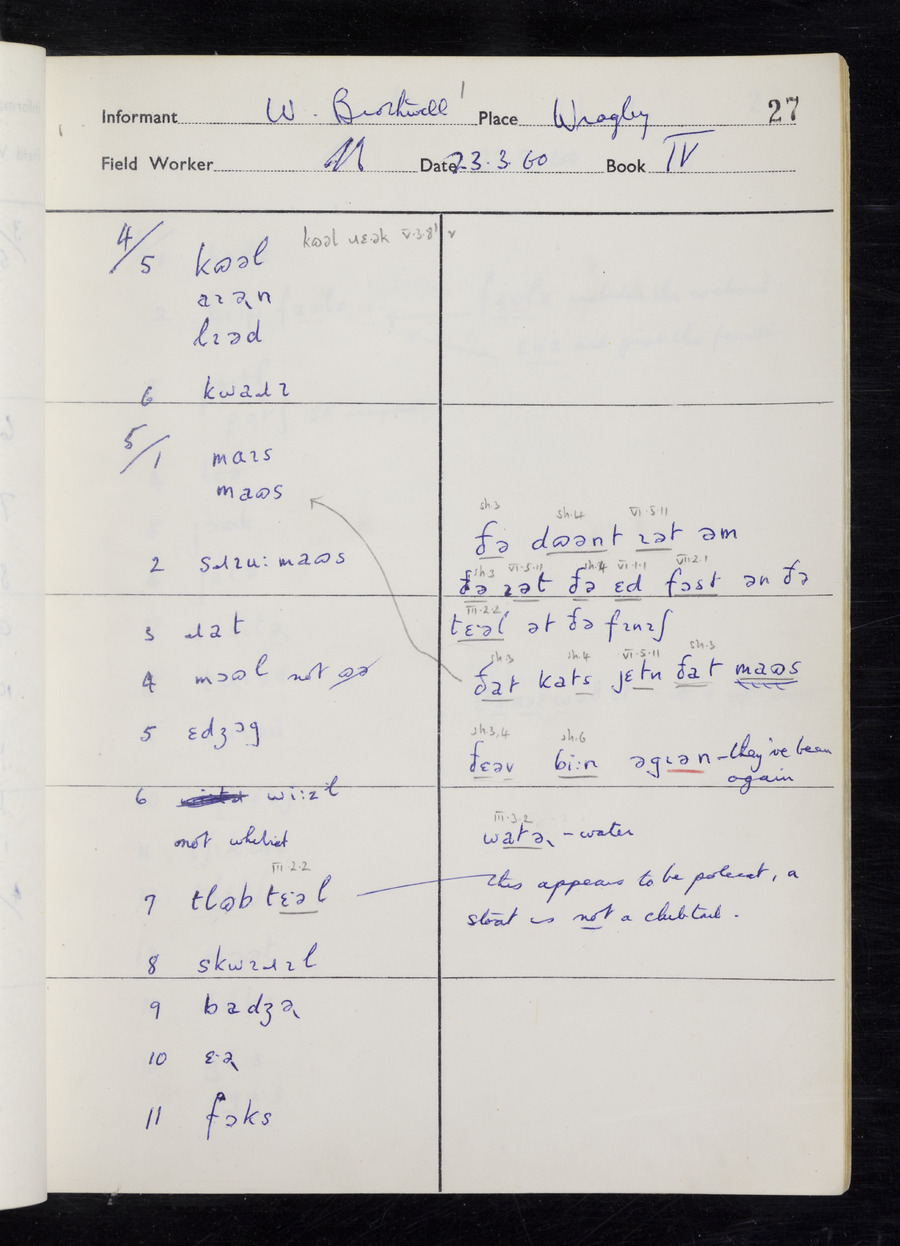 27
Informant W. Brockwell Place Wragby
Field Worker Date 23.3.60 Book IV
4/5 kɷəl kɷəl ɹɛək V.3.8
aɪəʴn
lɪəd
6 kwaɹɪ
5/1 maɪs
maɷs
2 ʃɹɪu: maɷs
3 ɹat
4 mɔəl not
5 ɛdʒɔg
6 wi:zl
not whelret
III.2.2
7 tlɷb tɛəl
8 skwɪɹɪl
9 badʒəʴ
10 ɛ·əʴ
11 fɔks
sh.3 sh.4 VI.5.11
ðə dɷənt ɪət əm
sh.3 VI.5.11 sh.4 VI.1.1 VII.2.1
ðə ɪət ðə ɛd fəst ən ðə
III.2.2
tɛəl ət ðə fɪnɪʃ
sh.3 sh.4 VI.5.11 sh.3
ðat kats jɛtn ðat maɷs
sh.3,4 sh.6
ðɛəv bi:n əgɪən – they've been
again
III.3.2
watəʴ – water
this appears to be polecat, a
stoat is not a clubtail.